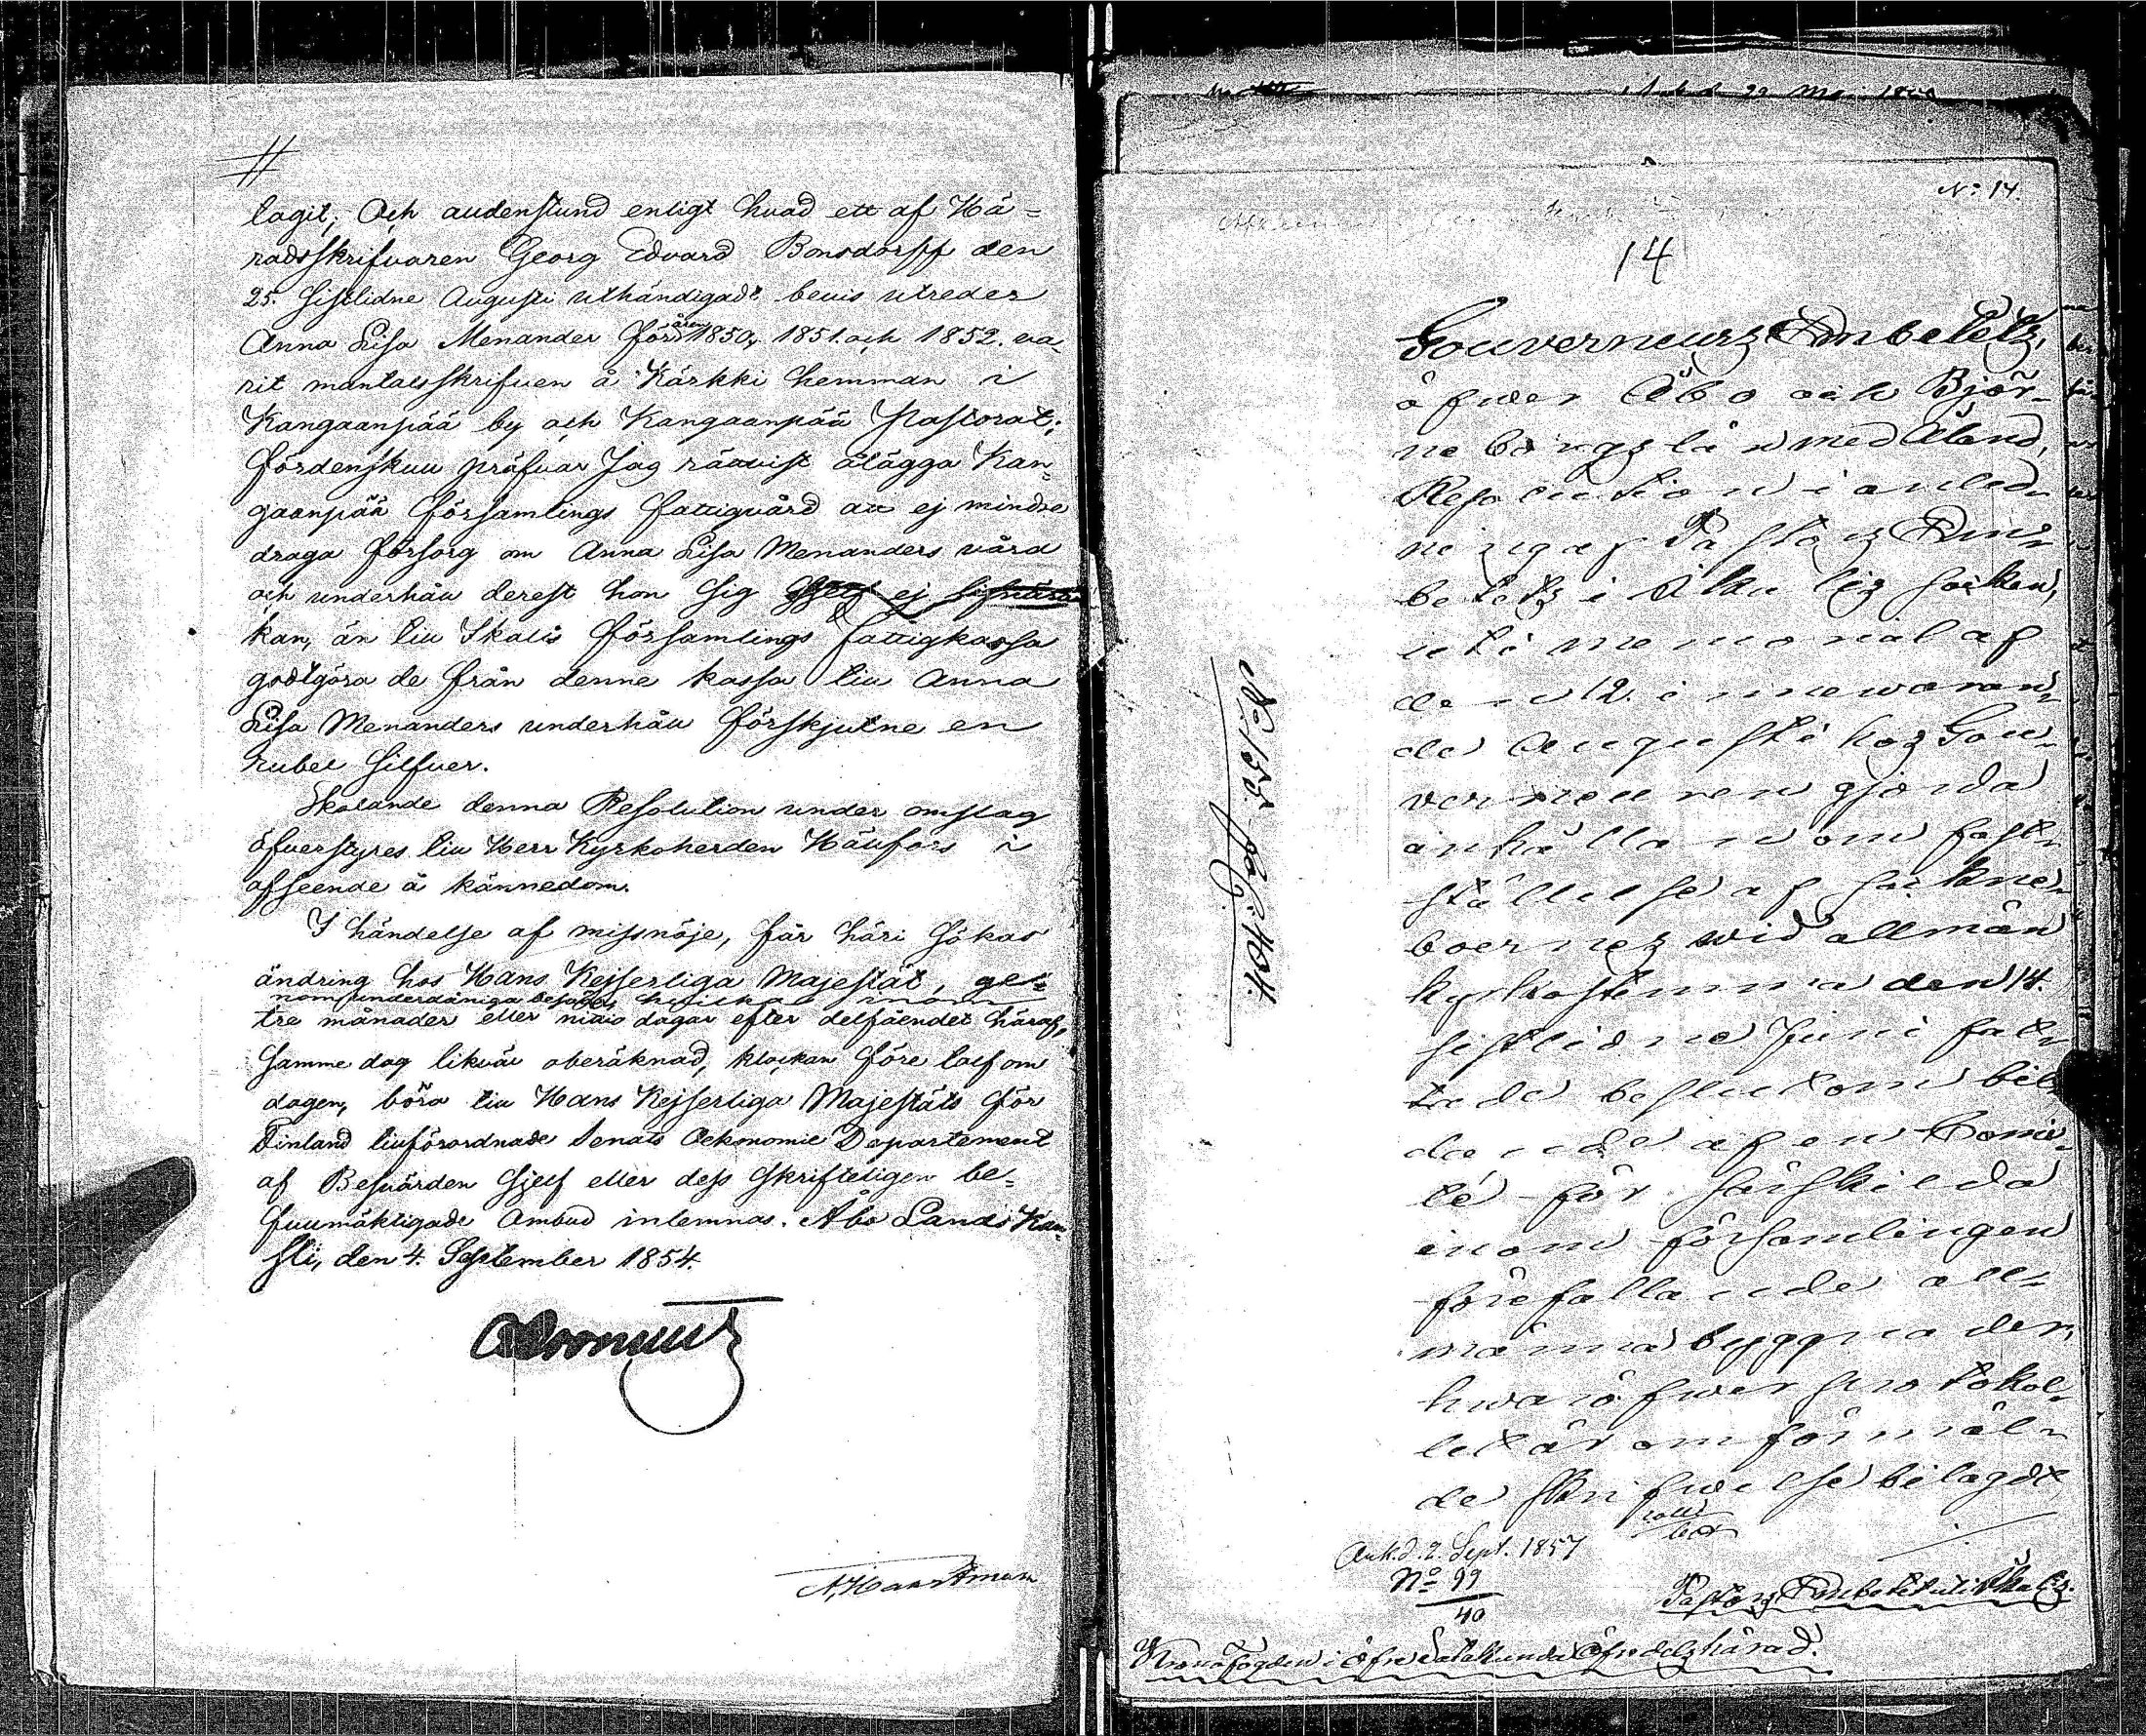 lagit; Och audenstund enligt hvad ett af Hä=
radsskrifvaren Georg Edvard Bonsdorff den
25. sistlidne Augusti uthändigadt bevis utreder
Anna Lisa Menander för åren 1850, 1851. och 1852. va-
rit mantalsskrifven å Kärkki hemman i
Kangaanpää by och Kangaanpää Pastorat;
fördenskull pröfvar Jag rättvist ålägga Kan-
gaanpää församlings fattigvård att ej mindre
draga försorg om Anna Lisa Menanders vård
och underhåll derest hon sig sjelf ej
kan, än till Ikalis församlings fattigkassa
godtgöra de från denne kassa till Anna
Lisa Menanders underhåll förskjutne en
rubel silfver.
Skolande denna Resolution under omslag
öfverstyres till Herr Kyrkoherden Hällfors i
afseende å kännedom.
I händelse af missnöje, får häri sökas
ändring hos Hans Kejserliga Majestät, ge-
nom underdåniga besvär, hvilka inom
tre månader eller nittio dagar efter delfåendet häraf,
samme dag likväl oberäknad, klockan före tolf om
dagen, böra till Hans Kejserliga Majestäts för
Finland tillförordnade Senats Oekonomie Departement
af Besvärden sjelf eller dess skrifteligen be-
fullmäktigade Ombud inlemnas. Åbo Lands Kan-
sli, den 4. September 1854.
14
N:o 14.
Gouverneurs Embetets,
öfwer Åbo och Björ-
neborgs län med Åland,
Resolution i anled-
ning af Pastors Em-
betets i Ikalis socken,
uti memorial af
den 12. innewaran-
de Augusti hos Gou-
verneuren gjorda
anhållan om fast-
ställelse af sockne-
boernes wid allmän
kyrkostämma den 14.
sistlidne Juni fat-
tade beslut om bil-
dande af en Comi-
té för särskilda
inom församlingen
förefallande all-
männa byggnader,
hwaröfwer protokol-
let är omförmäl-
de skrifwelse bilagdt,
Ank. d. 2. Sept. 1857
No 99
40
Pastors Embetet uti Ikalis.
Kronofogden i Öfre Satakunda Öfredels härad.